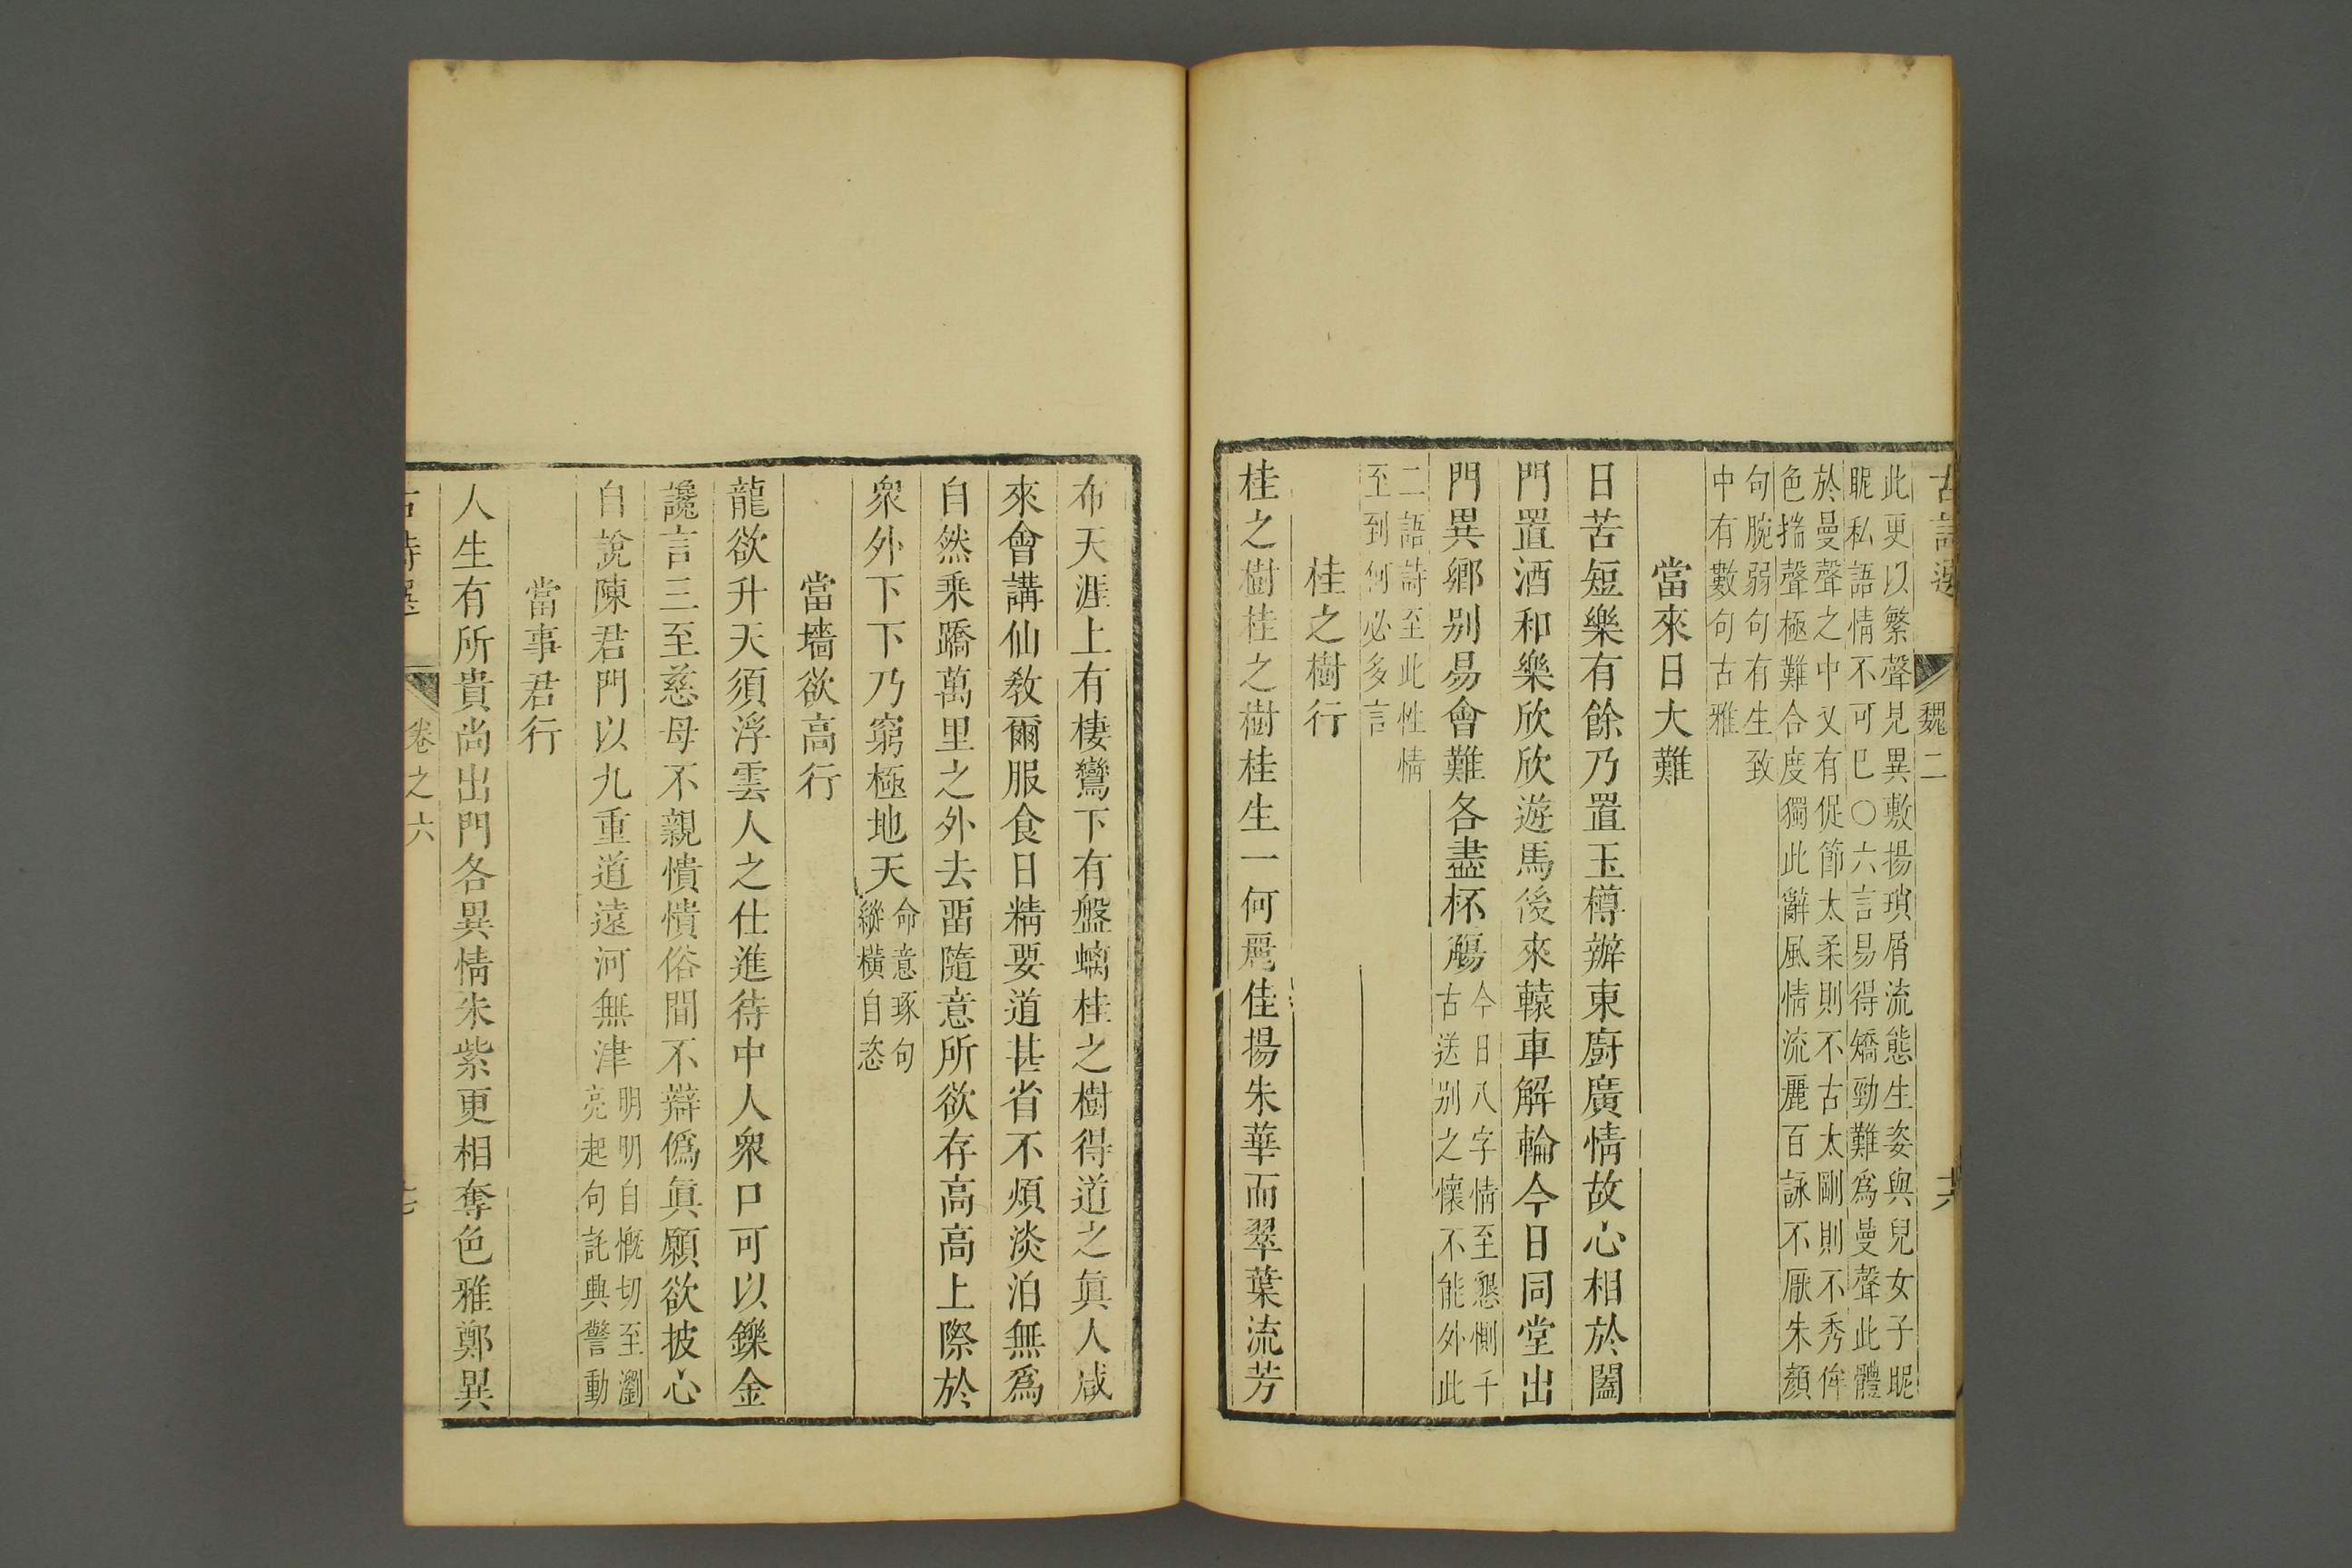 魏二
此更以繁聲見異敷揚瑣屑流態生姿與兒女子昵
昵私語情不可已〇六言易得矯勁難爲曼聲此體
於曼聲之中又有促節太柔則不古太剛則不秀侔
色揣聲極難合度獨此辭風情流麗百詠不厭朱顏
句腕弱句有生致
中有數句古雅
當來日大難
日苦短樂有餘乃置玉樽辦東廚廣情故心相於闔
門置酒和樂欣欣遊馬後來轅車解輪今日同堂出
門異鄉別易會難各盡杯觴
今日八字情至懇惻千
古送別之懷不能外此
二語詩至此性情
至到何必多言
桂之樹行
桂之樹桂之樹桂生一何麗佳揚朱華而翠葉流芳
布天涯上有棲鸞下有盤螭桂之樹得道之眞人咸
來會講仙敎爾服食日精要道甚省不煩淡泊無爲
自然乘蹻萬里之外去畱隨意所欲存高高上際於
衆外下下乃窮極地天
命意琢句
縱橫自恣
當墻欲高行
龍欲升天須浮雲人之仕進待中人衆口可以鑠金
讒言三至慈母不親憒憒俗間不辯僞眞願欲披心
自說陳君門以九重道遠河無津
明明自慨切至瀏
亮起句託興警動
當事君行
人生有所貴尚出門各異情朱紫更相奪色雅鄭異
古詩選
卷之六